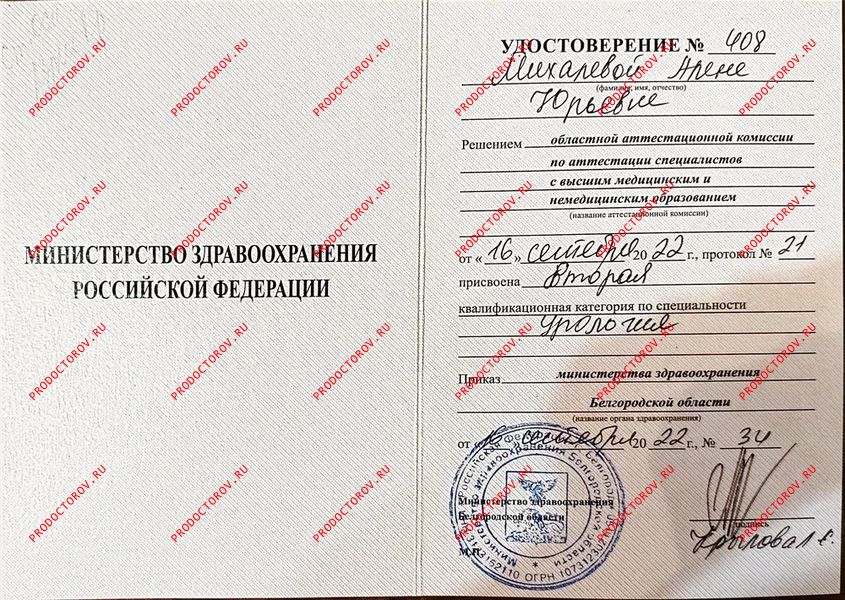 МИНИСТЕРСТВО ЗДРАВООХРАНЕНИЯ
РОССИЙСКОЙ ФЕДЕРАЦИИ
УДОСТОВЕРЕНИЕ № 408
Михаревой Арене
(фамилия, имя, отчество)
Юрьевне
Решением областной аттестационной комиссии
по аттестации специалистов
с высшим медицинским и
немедицинским образованием
(название аттестационной комиссии)
от « 16 » сентября 20 22 г., протокол № 21
присвоена вторая
квалификационная категория по специальности
урология
Приказ министерства здравоохранения
Белгородской области
(название органа здравоохранения)
от « 16 » сентября 20 22 г., № 34
Министерство здравоохранения
Белгородской области
подпись
М.П.
PRODOCTOROV.RU